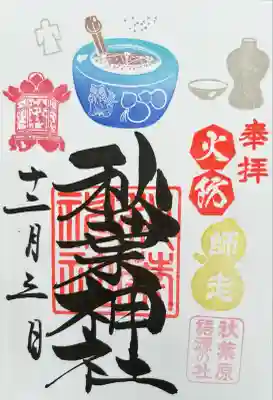 奉拝
火防
師走
秋葉神社
十二月三日
秋葉原